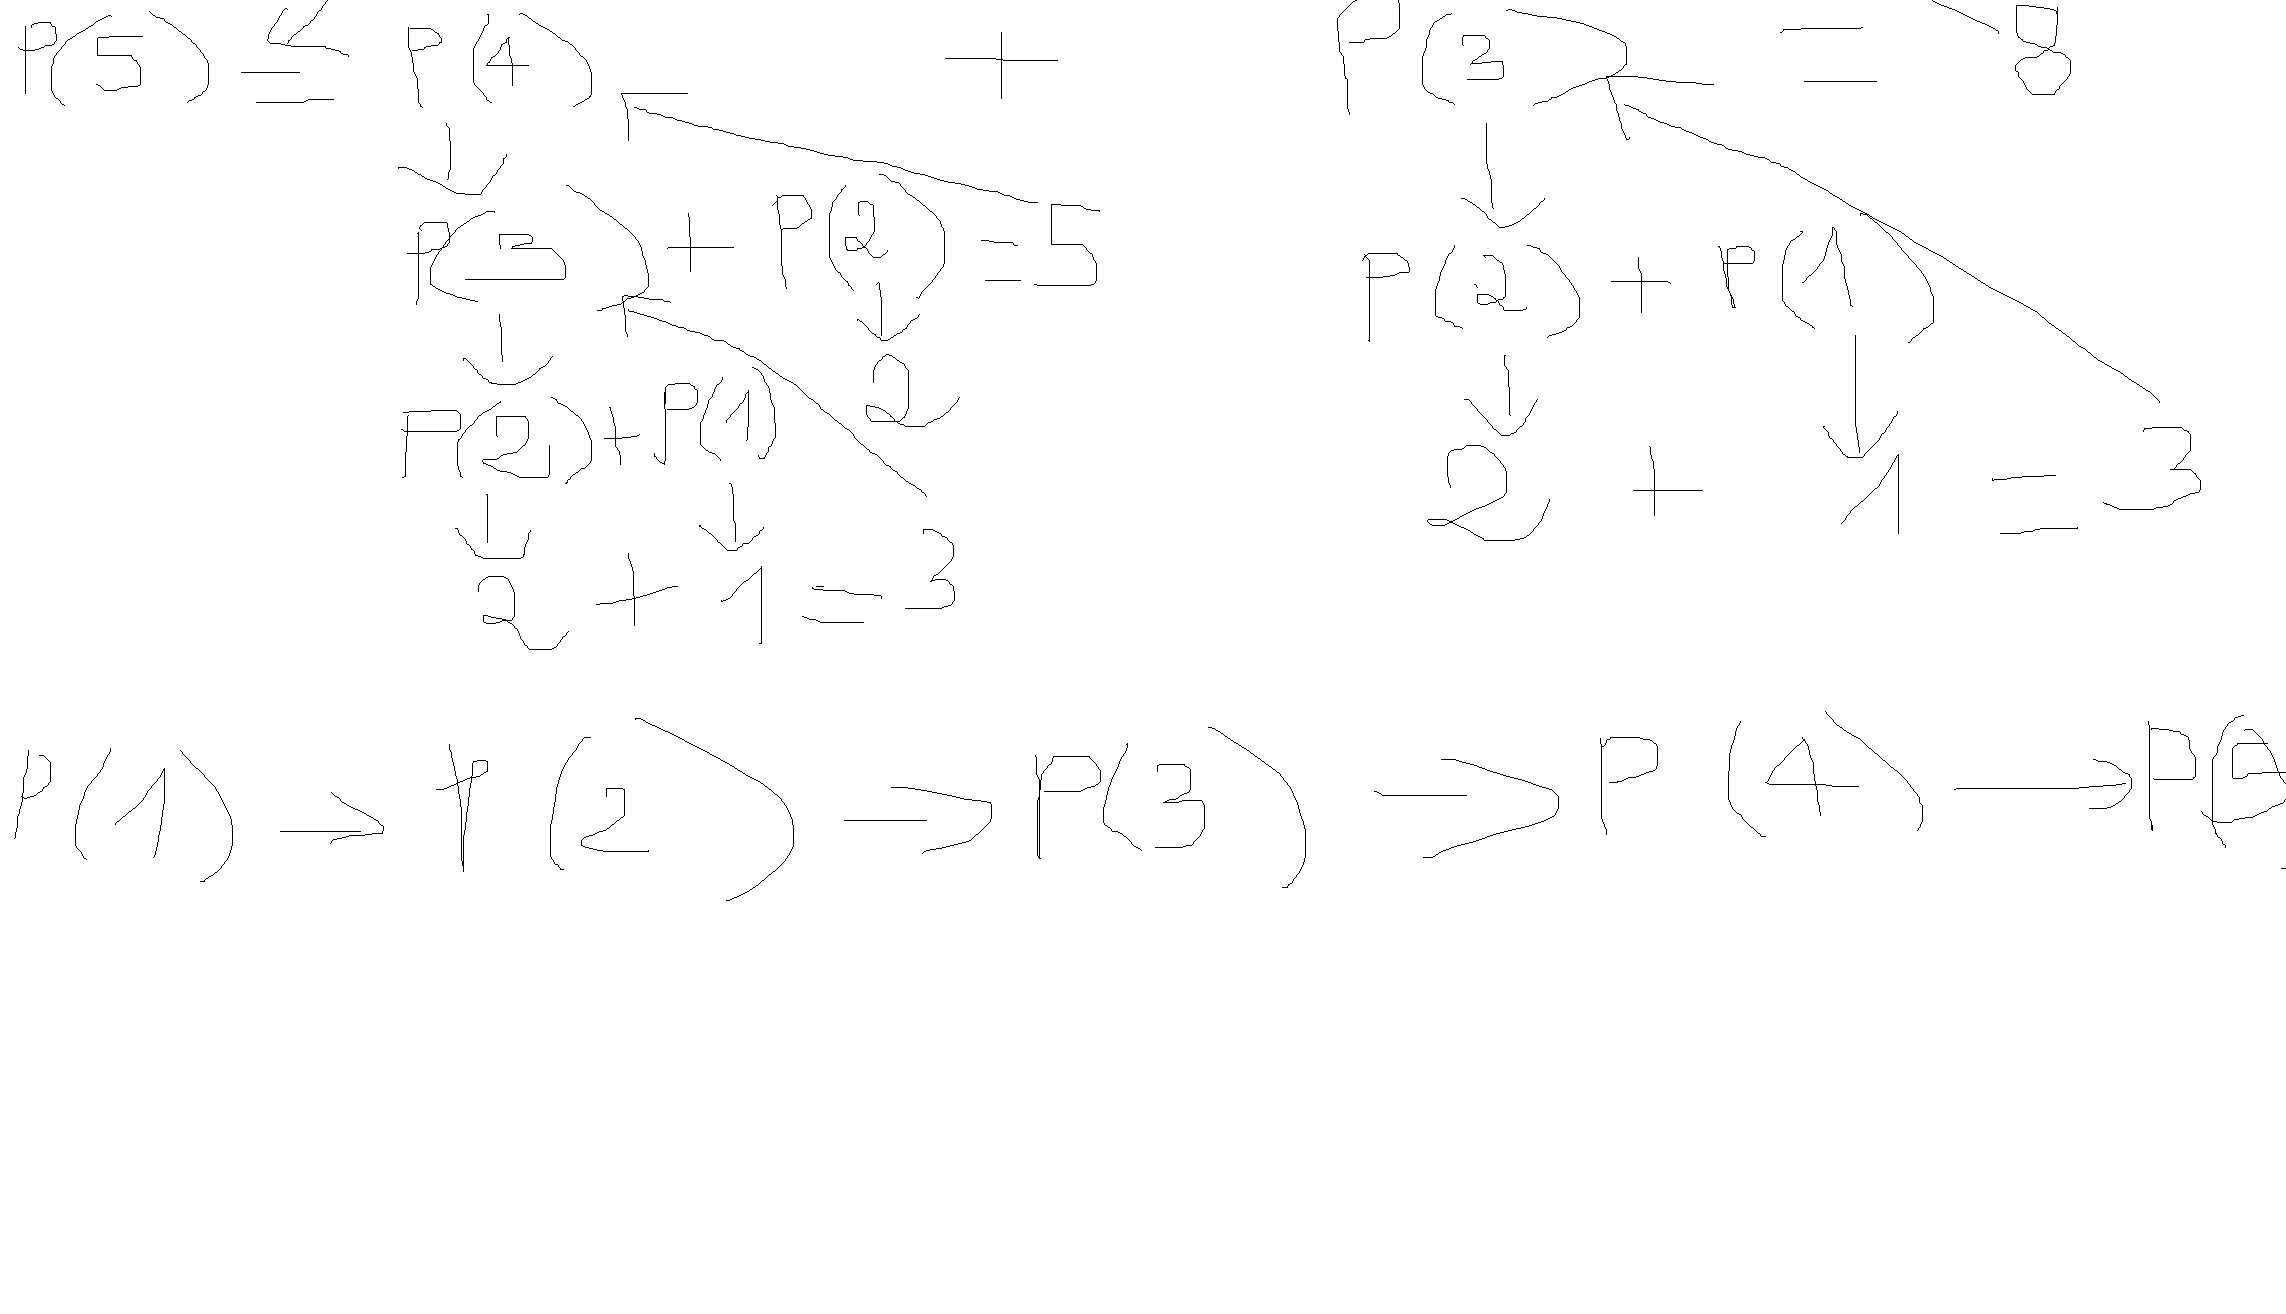 P(5) = P(4) + P(3) = 8
P(3) + P(2) = 5
P(2) + P(1)
2
P(2) + P(1)
2 + 1 = 3
2 + 1 = 3
P(1) → P(2) → P(3) → P(4) → P(5